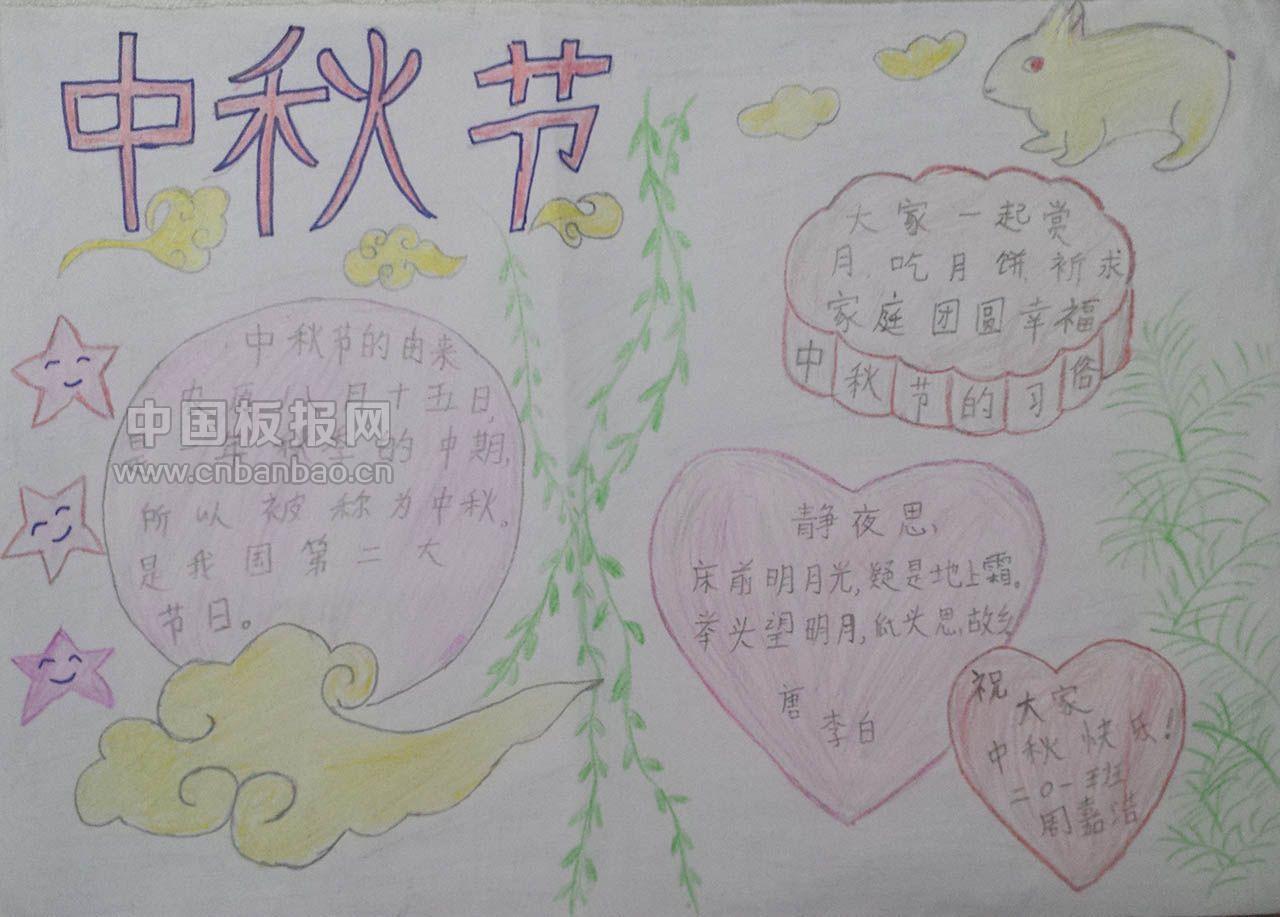 中秋节
中秋节的由来
八月十五日,
的中期,
所以被称为中秋。
是我国第二大
节日。
中国板报网
www.cnbanbao.cn
大家一起赏
月、吃月饼、祈求
家庭团圆幸福
中秋节的习俗
静夜思、
床前明月光,疑是地上霜。
举头望明月,低头思故乡
唐
李白
祝
大家
中秋快乐!
二〇一班
周嘉洁